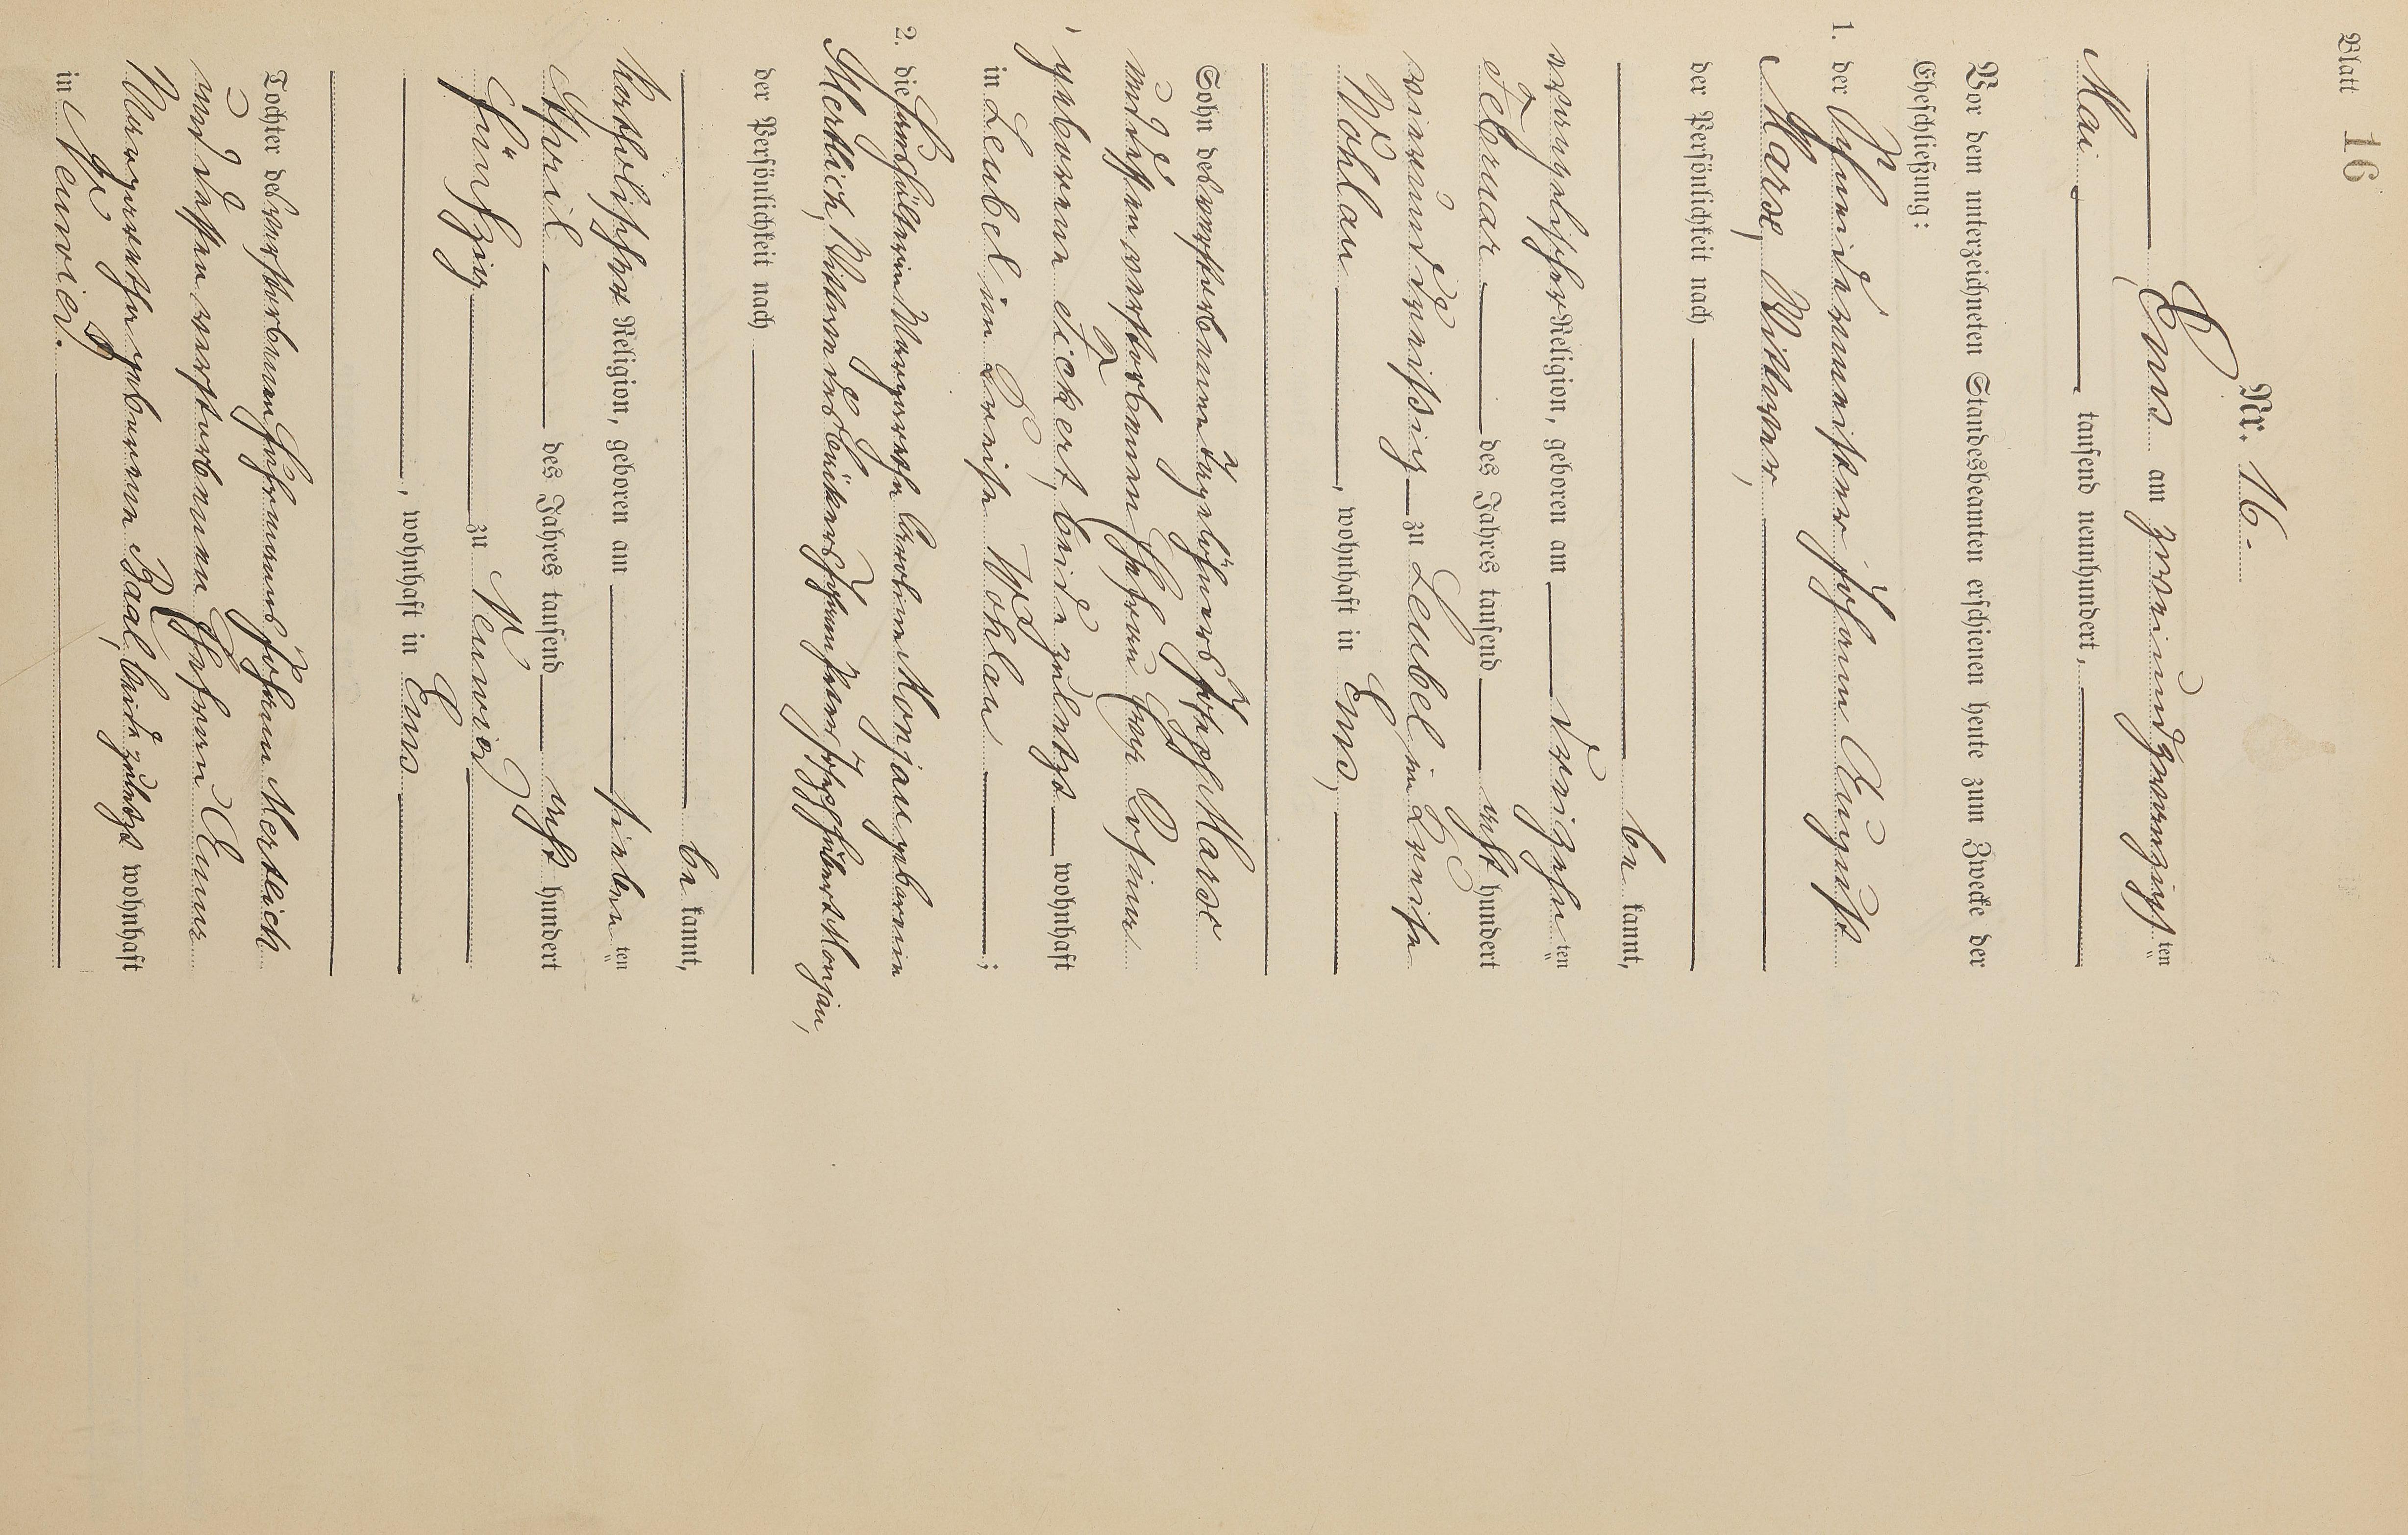 Blatt 16
Nr. 16.
Ems am zweiundzwanzigsten
Mai tausend neunhundert,
Vor dem unterzeichneten Standesbeamten erschienen heute zum Zwecke der
Eheschließung:
1. der Schneidermeister Johann August
Marx, Wittwer,
der Persönlichkeit nach
be kannt,
evangelischer Religion, geboren am dreizehnten
Februar des Jahres tausend acht hundert
vierunddreißig zu Leubel im Kreise
Wohlau, wohnhaft in Ems,
Sohn des verstorbenen Tagelöhners Joseph Marx
und dessen verstorbenen Ehefrau Eva Rosina
geborene Eickert, beide zuletzt wohnhaft
in Leubel im Kreise Wohlau;
2. die Haushälterin Margaretha Caroline Monjau geborene
Mertlich, Wittwe des Bäckers Johann Peter Joseph Hubert Monjau,
der Persönlichkeit nach
be kannt,
katholischer Religion, geboren am siebenten
April des Jahres tausend acht hundert
fünfzig zu Neuwied
, wohnhaft in Ems
Tochter des verstorbenen Fuhrmanns Johann Mertlich
und dessen verstorbenen Ehefrau Anna
Margaretha geborenen Baal, beide zuletzt wohnhaft
in Neuwied.